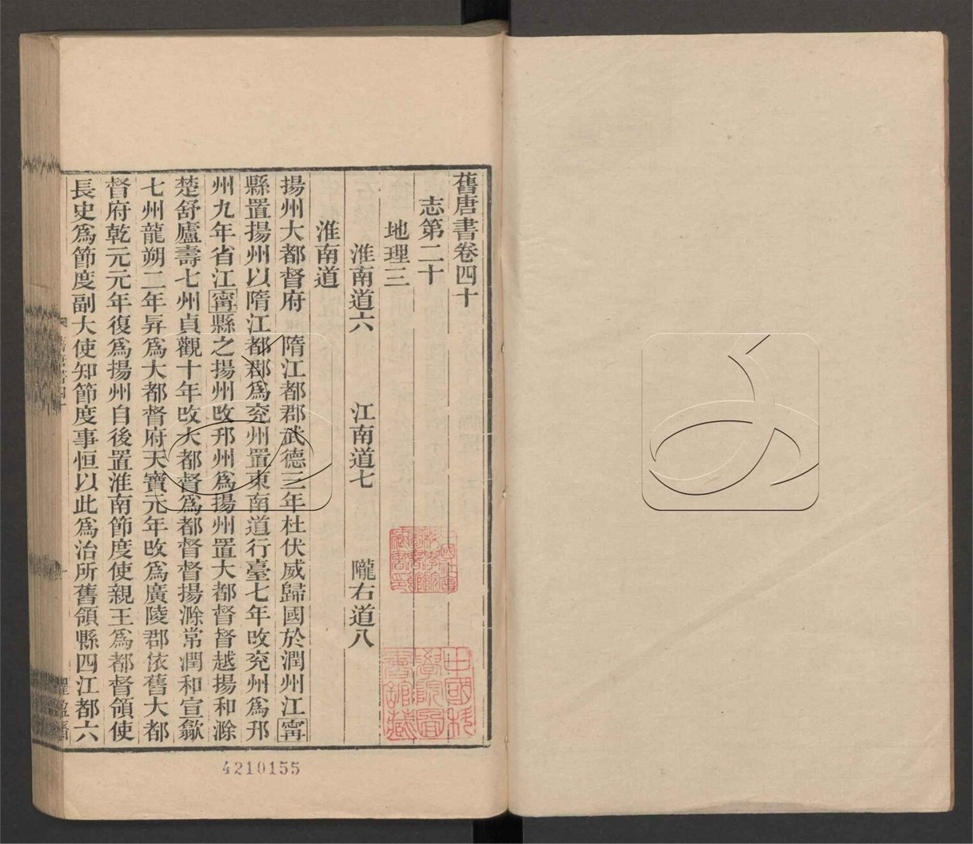 舊唐書卷四十
志第二十
地理三
淮南道六　江南道七　隴右道八
淮南道
揚州大都督府　隋江都郡武德三年杜伏威歸國於潤州江甯
縣置揚州以隋江都郡爲兖州置東南道行臺七年改兖州爲邗
州九年省江甯縣之揚州改邗州爲揚州置大都督督越揚和滁
楚舒廬壽七州貞觀十年改大都督爲都督督揚滁常潤和宣歙
七州龍朔二年昇爲大都督府天寶元年改爲廣陵郡依舊大都
督府乾元元年復爲揚州自後置淮南節度使親王爲都督領使
長史爲節度副大使知節度事恒以此爲治所舊領縣四江都六
中國科學院圖書館藏
4210155